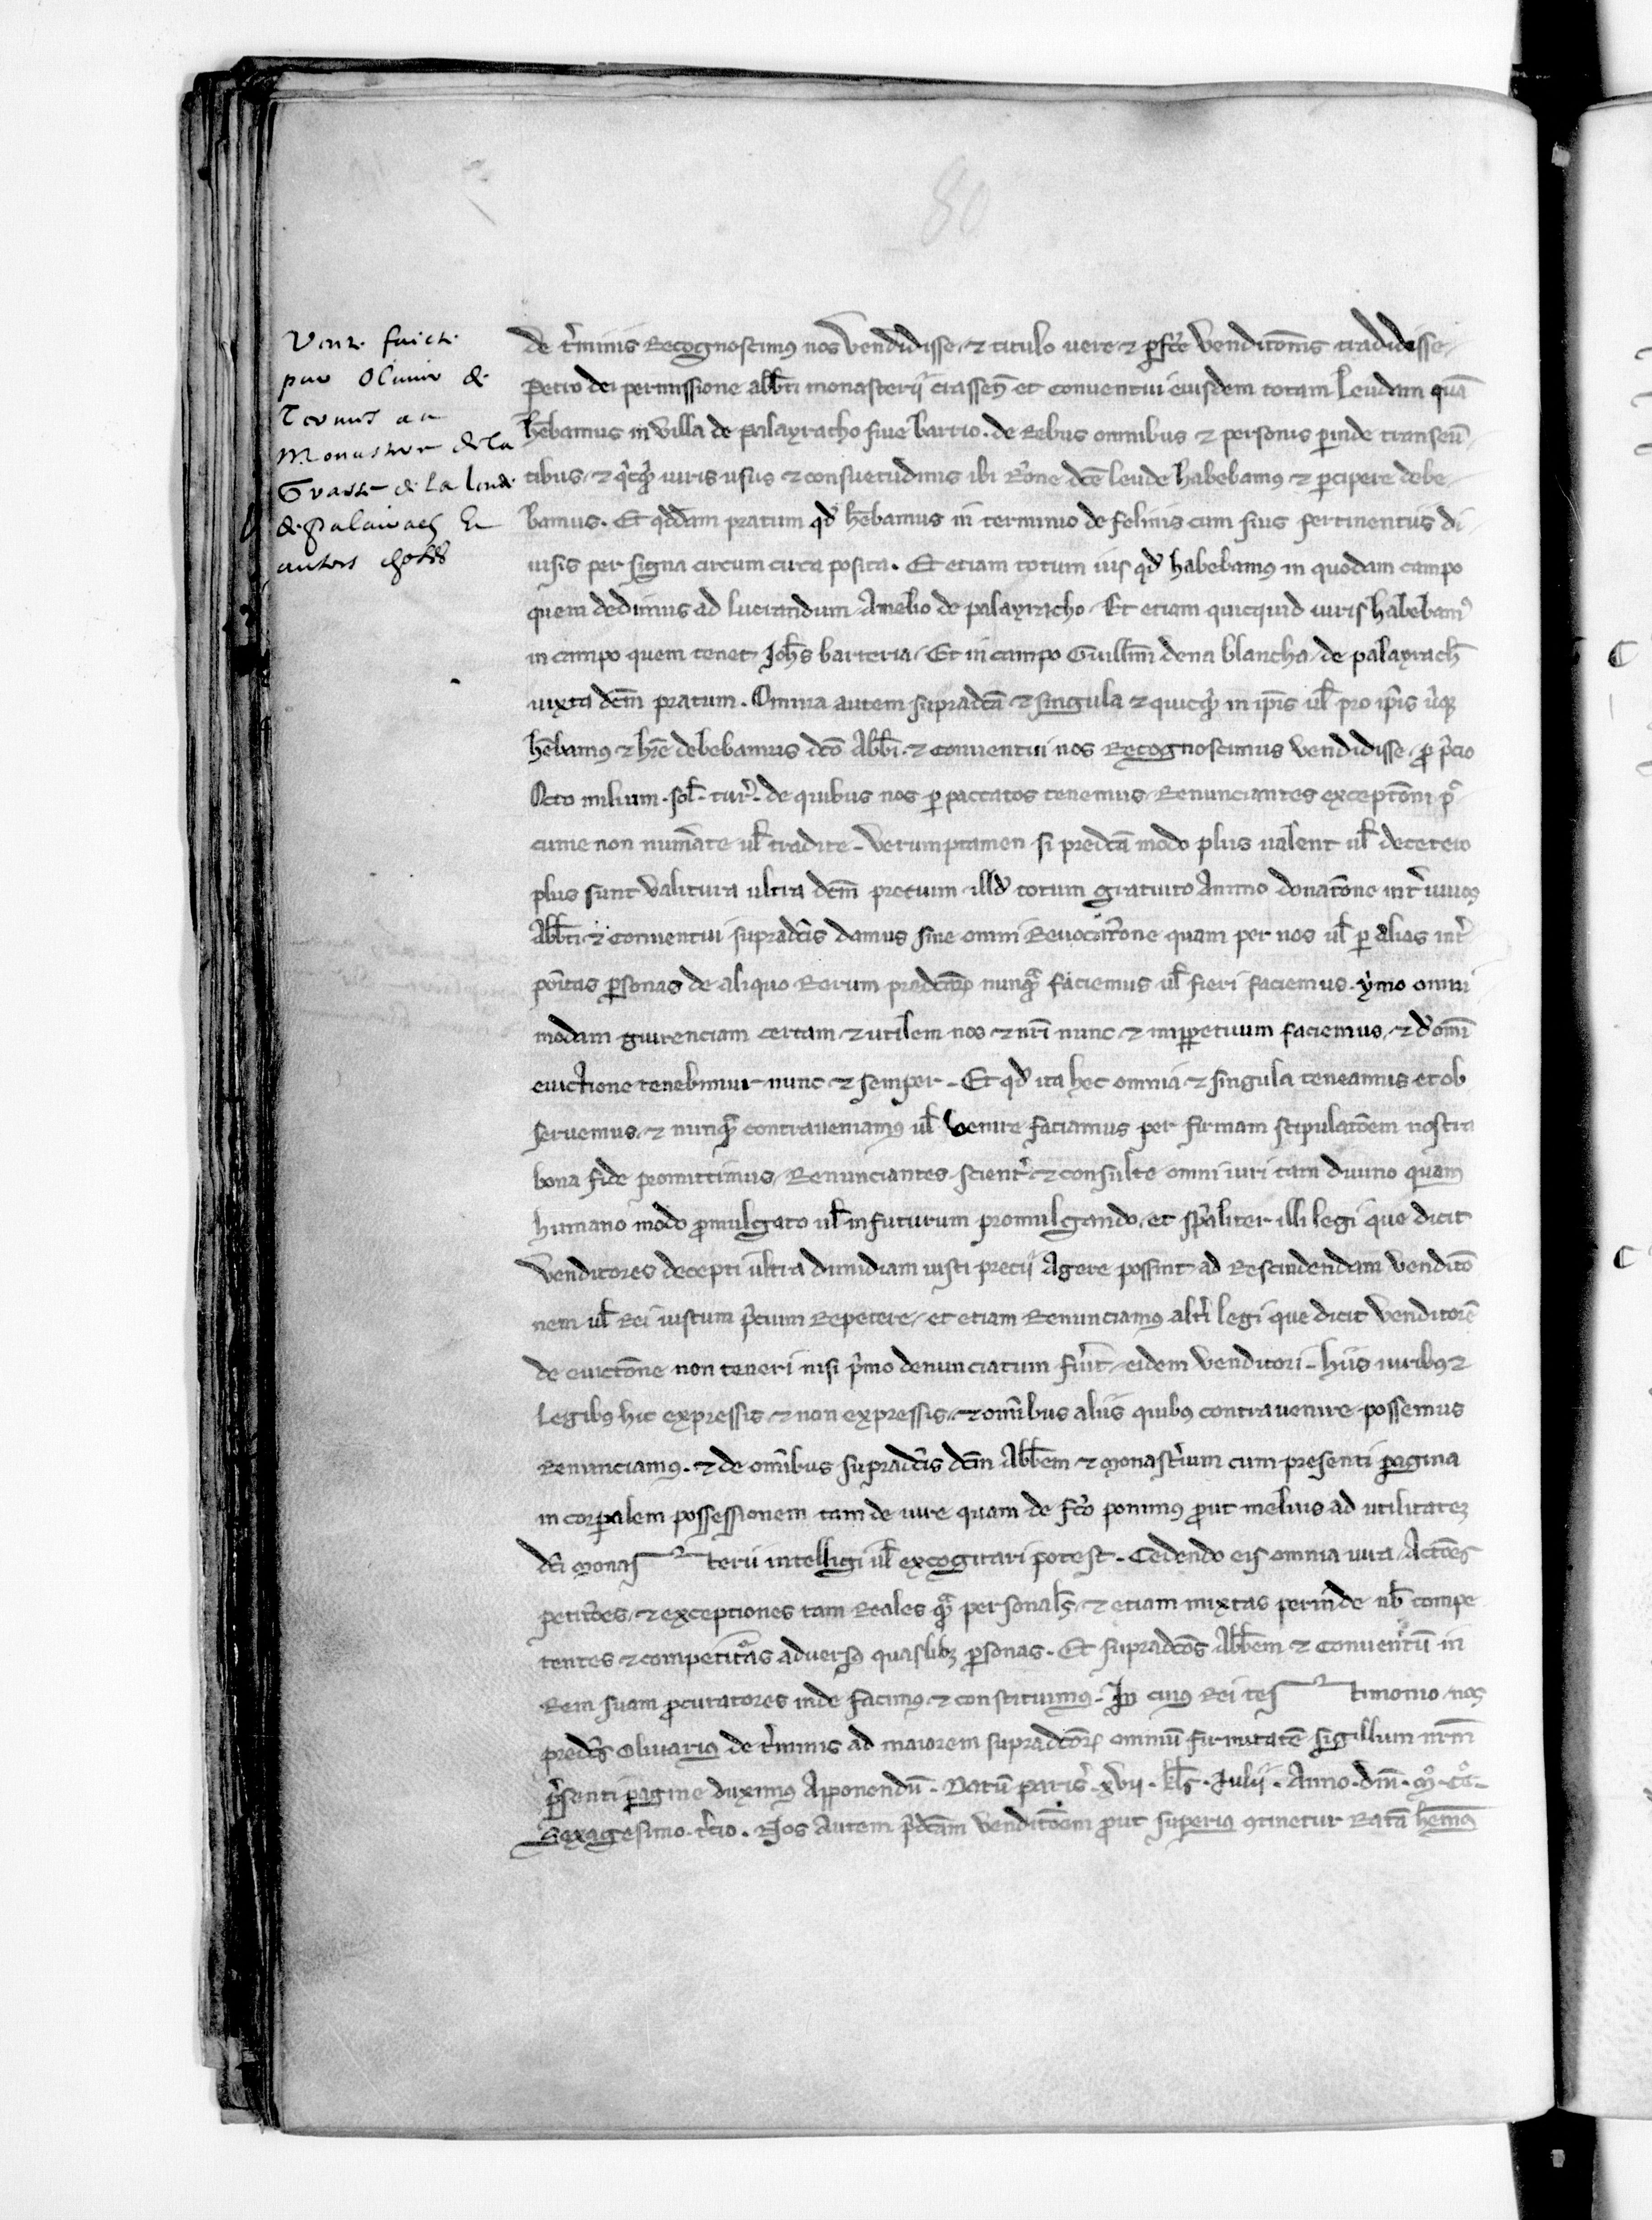 80
Vente faicte
par Oliuier de
Termes au
Monastere de la
Grasse de la leude
de palairac Et
autres choses
de t'minis Recognoscimus nos vendidisse ⁊ titulo uere ⁊ p̄fc̄e venditōnis tradidisse
Petro dei permissione abb̄ti monasterij crassen̄ et conventui eiusdem totam leudam quā
hēbamus in villa de palayracho siue barrio. de Rebus omnibus ⁊ personis p̄inde transeū
tibus. ⁊ q̇cq̇d iuris usus ⁊ consuetudinis ibi Rōne dc̄e leude habebamꝰ ⁊ p̄cipere debe
bamus. Et qddam pratum qd̄ hēbamus in terminio de felinis cum suis pertinentiis di
uisis per signa circum circa posita. Et etiam totum ius qd̄ habebamꝰ in quodam campo
quem dedimus ad lucrandum Amelio de palayracho. Et etiam quicquid iuris habebamꝰ
in campo quem tenet Joh̄s barreria. Et in campo Guill̄mi dena blancha de palayrach̄
iuxta dc̄m pratum. Omnia autem supradc̄a ⁊ singula ⁊ quicq̇d in ip̄is ul̄ pro ip̄is
hēbamꝰ ⁊ hr̄e debebamus dc̄o Abb̄i ⁊ conuentui nos Recognoscimus vendidisse p̄ p̄cio
Octo milium sol̄. tur̄. de quibus nos p̄ paccatos tenemus Renunciantes exceptōni p̄
cunie non num̄ate ul̄ tradite. Verumptamen si predc̄a modo plus ualent ul̄ decetero
plus sunt valitura ultra dc̄m pretium illd̄ totum gratuito Animo donatōne int' uiuos
Abb̄ti ⁊ conuentui supradc̄is damus sine omni Reuocatōne quam per nos ul̄ p̄ alias int'
po͞itas p̄sonas de aliquo Rerum predc̄aꝝ nunq̄ faciemus ul̄ fieri faciemus. ymo omni
modam guirenciam certam ⁊ utilem nos ⁊ nr̄i nunc ⁊ inp̄petuum faciemus. ⁊ d' om̄i
euictione tenebimur nunc ⁊ semper. Et qd̄ ita hec omnia ⁊ singula teneamus et ob
seruemus. ⁊ nunq̄ contraueniamꝰ ul̄ venire faciamus per firmam stipulatōem nostra
bona fide promittimus. Renunciantes scient' ⁊ consulte omni iuri tam diuino quam
humano modo p̄mulgato ul̄ in futurum promulgando. et sp̄aliter illi legi que dicit
venditores decepti ultra dimidiam iusti precij Agere possint ad Rescindendam venditō
nem ul̄ Rei iustum p̄cium Repetere. et etiam Renunciamꝰ alt'i legi que dicit venditorē
de euictōne non teneri nisi p̄mo denunciatum fu'it eidem venditori. hiis iuribꝰ ⁊
Legibꝰ hic expressis ⁊ non expressis ⁊ om̄ibus aliis quibꝰ contrauenire possemus
Renunciamꝰ. ⁊ de om̄ibus supradc̄is dc̄m Abb̄em ⁊ monast'ium cum presenti pagina
in corpalem possessionem tam de iure quam de fc̄o ponimꝰ p̄ut melius ad utilitateꝫ
dc̄i monas terii intelligi ul̄ excogitari potest. Cedendo eis omnia iura Actōes
petitōes ⁊ exceptiones tam Reales q̄ personal̄s ⁊ etiam mixtas perinde nb̄ compe
tentes ⁊ competitās aduersꝰ quaslibꝫ p̄sonas. Et supradc̄os Abb̄em ⁊ Conuentū in
Rem suam p̄curatores inde facimꝰ ⁊ constituimꝰ. In cuiꝰ Rei tes timonio nos
predc̄s Oliuariꝰ de t'minis ad maiorem supradc̄oꝝ omniū firmitatē sigillum nr̄m
p̄senti pagine duximꝰ Apponendū. Datū paris'. xvij. kl̄s. Julij. Anno. dn̄i. mͦ. ccͦ.
Sexagesimo. t'cio. Nos autem p̄dc̄am venditōem p̄ut superiꝰ ꝯtinetur Ratā hēmꝰ